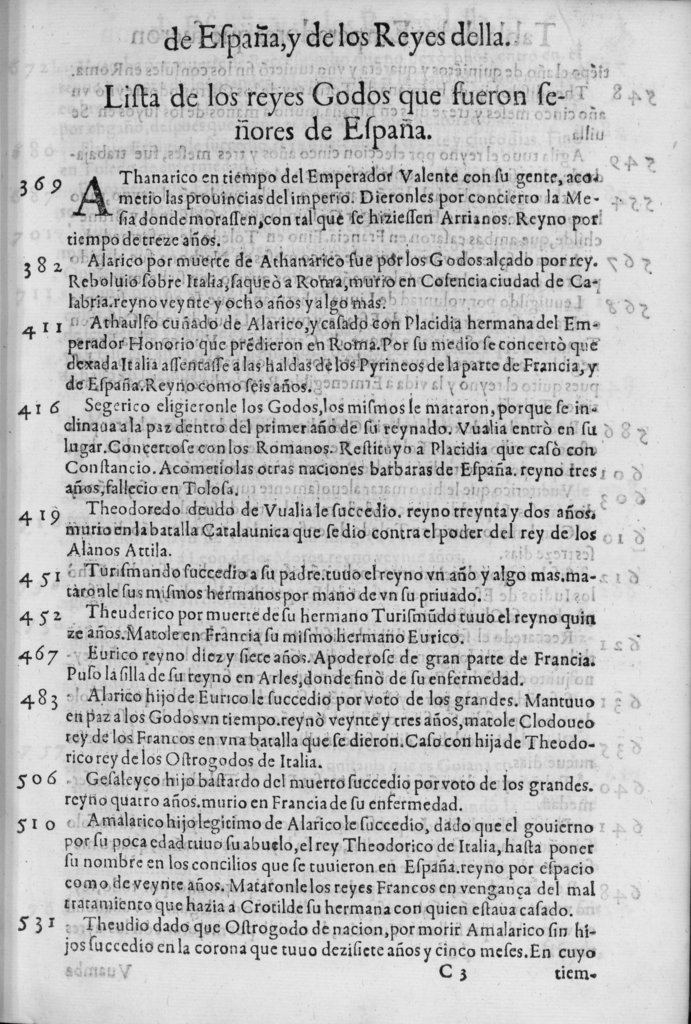 de Eſpaña,y de los Reyes della.
Liſta de los reyes Godos que fueron ſe-
ñores de Eſpaña.
369 AThanarico en tiempo del Emperador Valente con ſu gente, aco-
metio las prouincias del imperio. Dieronles por concierto la Me-
ſia donde moraſſen,con tal que ſe hizieſſen Arrianos. Reyno por
tiempo de treze años.
382 Alarico por muerte de Athanarico fue por los Godos alçado por rey.
Reboluio ſobre Italia,ſaqueò a Roma,murio en Coſencia ciudad de Ca-
labria.reyno veynte y ocho años y algo mas.
411 Athaulfo cuñado de Alarico,y caſado con Placidia hermana del Em-
perador Honorio que prẽdieron en Roma.Por ſu medio ſe concertò que
dexada Italia aſſentaſſe a las haldas de los Pyrineos de la parte de Francia, y
de Eſpaña.Reyno como ſeis años.
416 Segerico eligieronle los Godos,los miſmos le mataron, porque ſe in-
clinaua a la paz dentro del primer año de ſu reynado. Vualia entrò en ſu
lugar.Concertoſe con los Romanos. Reſtituyo a Placidia que caſò con
Conſtancio. Acometio las otras naciones barbaras de Eſpaña. reyno tres
años,fallecio en Toloſa.
419 Theodoredo deudo de Vualia le ſuccedio. reyno treynta y dos años.
murio en la batalla Catalaunica que ſe dio contra el poder del rey de los
Alanos Attila.
451 Turiſmundo ſuccedio a ſu padre.tuuo el reyno vn año y algo mas.ma-
taronle ſus miſmos hermanos por mano de vn ſu priuado.
452 Theuderico por muerte de ſu hermano Turiſmũdo tuuo el reyno quin
ze años.Matole en Francia ſu miſmo hermano Eurico.
467 Eurico reyno diez y ſiete años. Apoderoſe de gran parte de Francia.
Puſo la ſilla de ſu reyno en Arles,donde finò de ſu enfermedad.
483 Alarico hijo de Eurico le ſuccedio por voto de los grandes. Mantuuo
en paz a los Godos vn tiempo.reynò veynte y tres años,matole Clodoueo
rey de los Francos en vna batalla que ſe dieron.Caſo con hija de Theodo-
rico rey de los Oſtrogodos de Italia.
506 Geſaleyco hijo baſtardo del muerto ſuccedio por voto de los grandes.
reyno quatro años.murio en Francia de ſu enfermedad.
510 Amalarico hijo legitimo de Alarico le ſuccedio, dado que el gouierno
por ſu poca edad tuuo ſu abuelo,el rey Theodorico de Italia, haſta poner
ſu nombre en los concilios que ſe tuuieron en Eſpaña.reyno por eſpacio
como de veynte años. Mataronle los reyes Francos en vengança del mal
tratamiento que hazia a Crotilde ſu hermana con quien eſtaua caſado.
531 Theudio dado que Oſtrogodo de nacion,por morir Amalarico ſin hi-
jos ſuccedio en la corona que tuuo dezisiete años y cinco meſes.En cuyo
C 3 tiem-